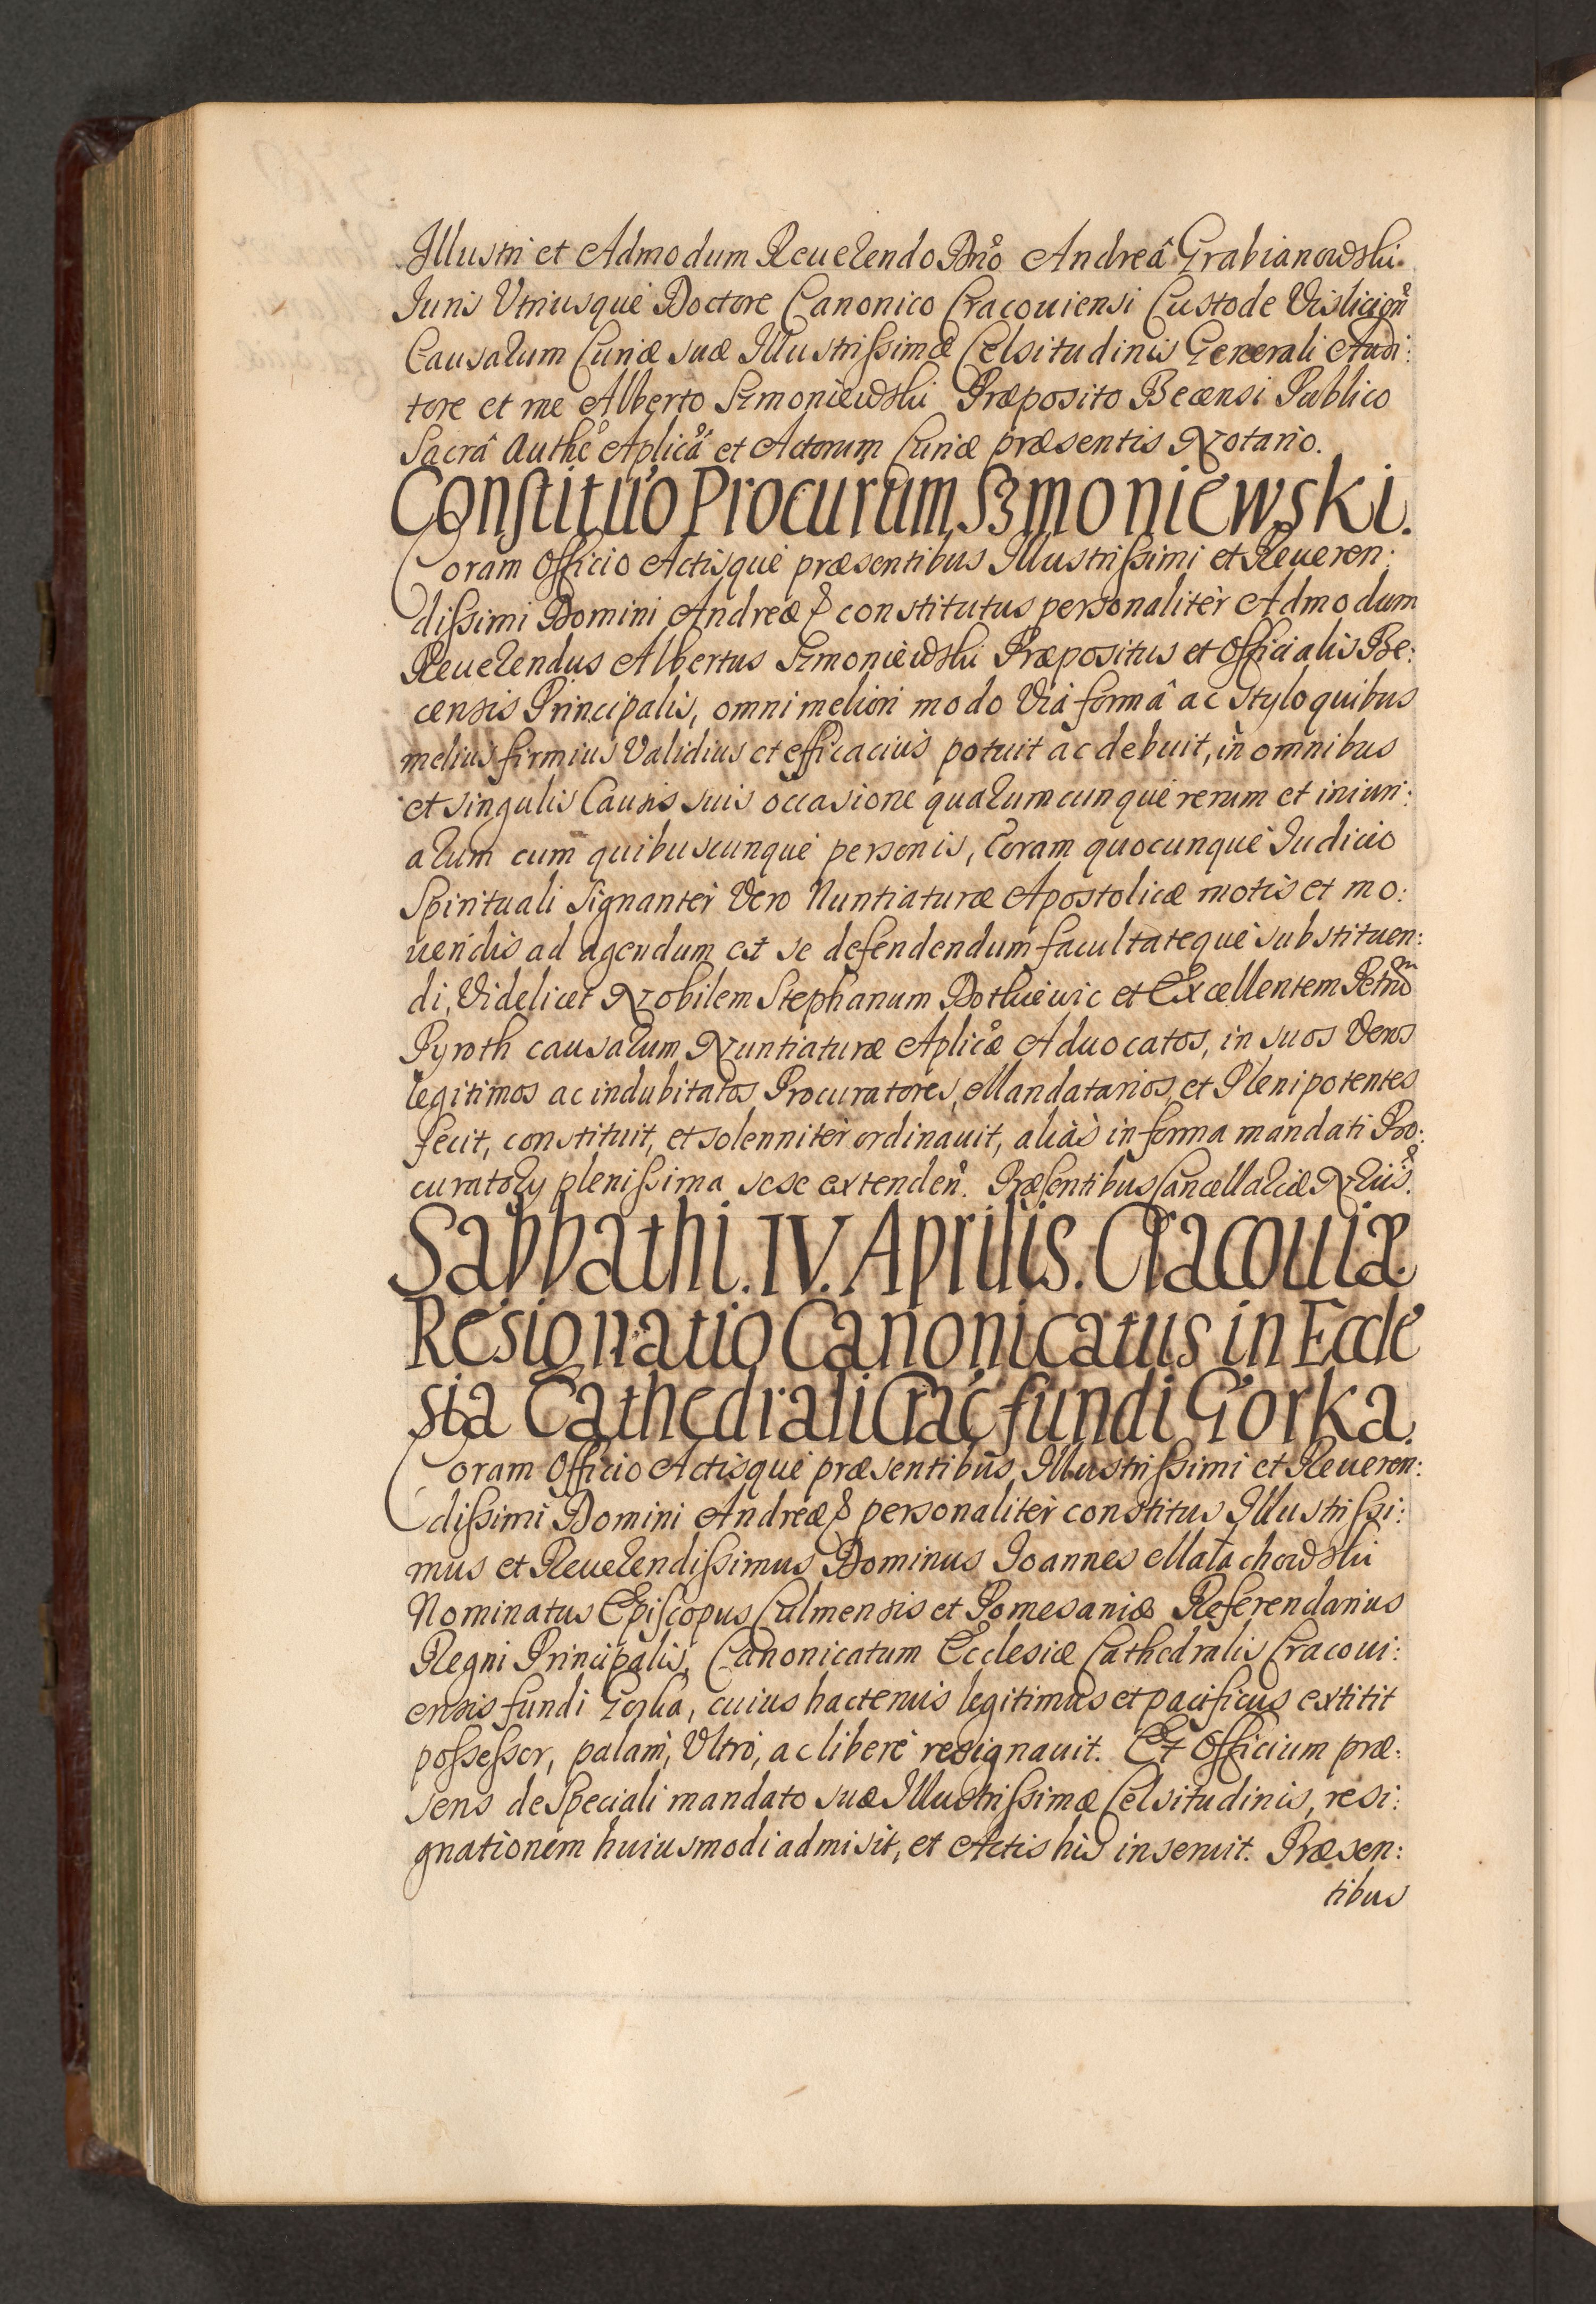 Illustri et Admodum Reuerendo Dnō Andreâ Grabianowski
Iuris Vtriusque Doctore Canonico Cracouiensi Custode Visliciēn
Causarum Curiæ suæ Illustrissimæ Celsitudinis Generali Audi:
tore et me Alberto Szmoniewski Præposito Becensi Publico
Sacrâ Authē Aplicâ et Actorum Curiæ præsentis Notario.
Constituo Procurum Szmoniewski.
Coram Officio Actisque præsentibus Illustrissimi et Reueren:
dissimi Domini Andreæ & constitutus personaliter Admodum
Reuerendus Albertus Szmoniewski Præpositus et Officialis Be:
censis Principalis, omni meliori modo Viâ formâ ac Stylo quibus
melius firmius Validius et efficacius potuit ac debuit, in omnibus
et singulis Causis suis occasione quarumcunque rerum et iniuri:
arum cum quibuscunque personis, Coram quocunque Iudicio
Spirituali Signanter Vero Nuntiaturæ Apostolicæ motis et mo:
uendis ad agendum et se defendendum facultateque substituen:
di, Videlicet Nobilem Stephanum Bothiewic et Excellentem Petrum
Pyroth causarum Nuntiaturæ Aplicæ Aduocatos, in suos Veros
legitimos ac indubitatos Procuratores, Mandatarios, et Plenipotentes
fecit, constituit, et solenniter ordinauit, aliàs in forma mandati Pro:
curatory plenissima sese extendēn. Præsentibus Cancellariæ Nrijs.
Sabbathi. IV. Aprilis. Cracouiæ.
Resignatio Canonicatus in Eccle
sia Cathedrali Crac fundi Gorka.
Coram Officio Actisque præsentibus Illustrissimi et Reueren:
dissimi Domini Andreæ & personaliter constitus Illustrissi:
mus et Reuerendissimus Dominus Ioannes Małachowski
Nominatus Episcopus Culmensis et Pomesaniæ Referendarius
Regni Principalis, Canonicatum Ecclesiæ Cathedralis Cracoui:
ensis fundi Gorka, cuius hactenus legitimus et pacificus extitit
possessor, palam, Vltrò, ac liberè resignauit. Et Officium præ:
sens de Speciali mandato suæ Illustrissimæ Celsitudinis, resi:
gnationem huiusmodi admisit, et Actis his inseruit. Præsen:
tibus